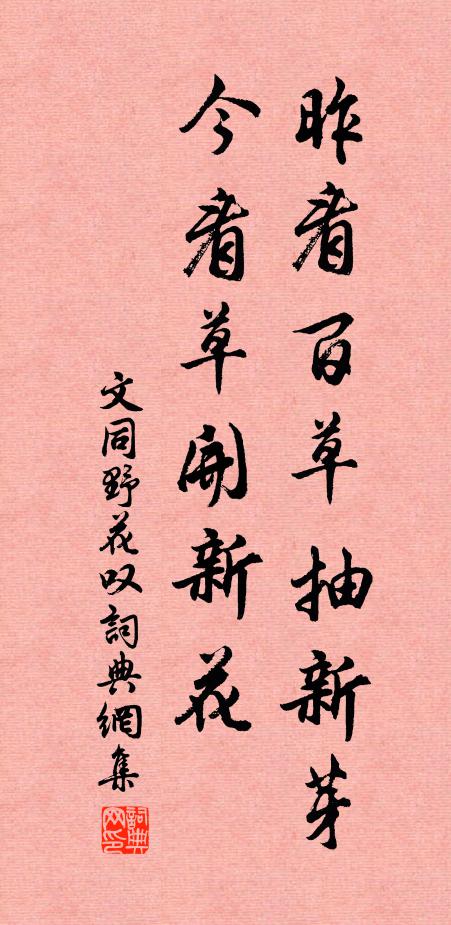 昨看百草抽新芽
今看草開新花
文同野花叹詞典網集
詞典
网印